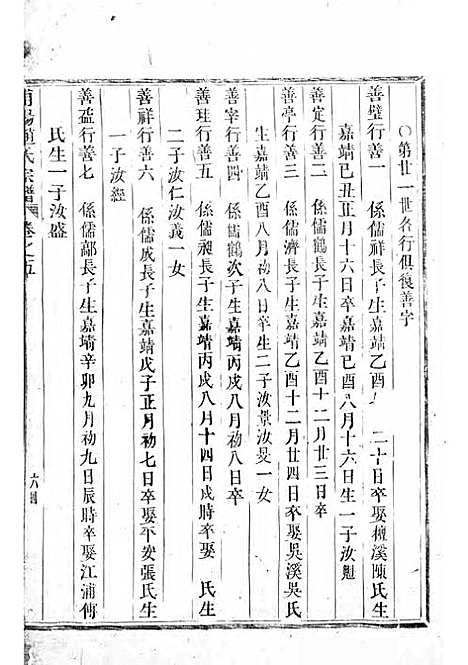 ○第廿一世名行俱復善字
善璧行善一　係儒祥長子生嘉靖乙酉　二十日卒娶檀溪陳氏生
嘉靖己丑正月十六日卒嘉靖己酉八月十六日生一子汝魁
善定行善二　係儒鶴長子生嘉靖乙酉十二月廿三日卒
善亭行善三　係儒濟長子生嘉靖乙酉十二月廿四日卒娶吳溪吳氏
生嘉靖乙酉八月初八日卒生二子汝景汝旻一女
善宰行善四　係儒鶴次子生嘉靖丙戌八月初八日卒
善珪行善五　係儒昶長子生嘉靖丙戌八月十四日戌時卒娶　氏生
二子汝仁汝義一女
善祥行善六　係儒成長子生嘉靖戊子正月初七日卒娶平安張氏生
一子汝經
善盃行善七　係儒鄗長子生嘉靖辛卯九月初九日辰時卒娶江浦傅
氏生一子汝盛
浦陽趙氏宗譜　卷之五　六四